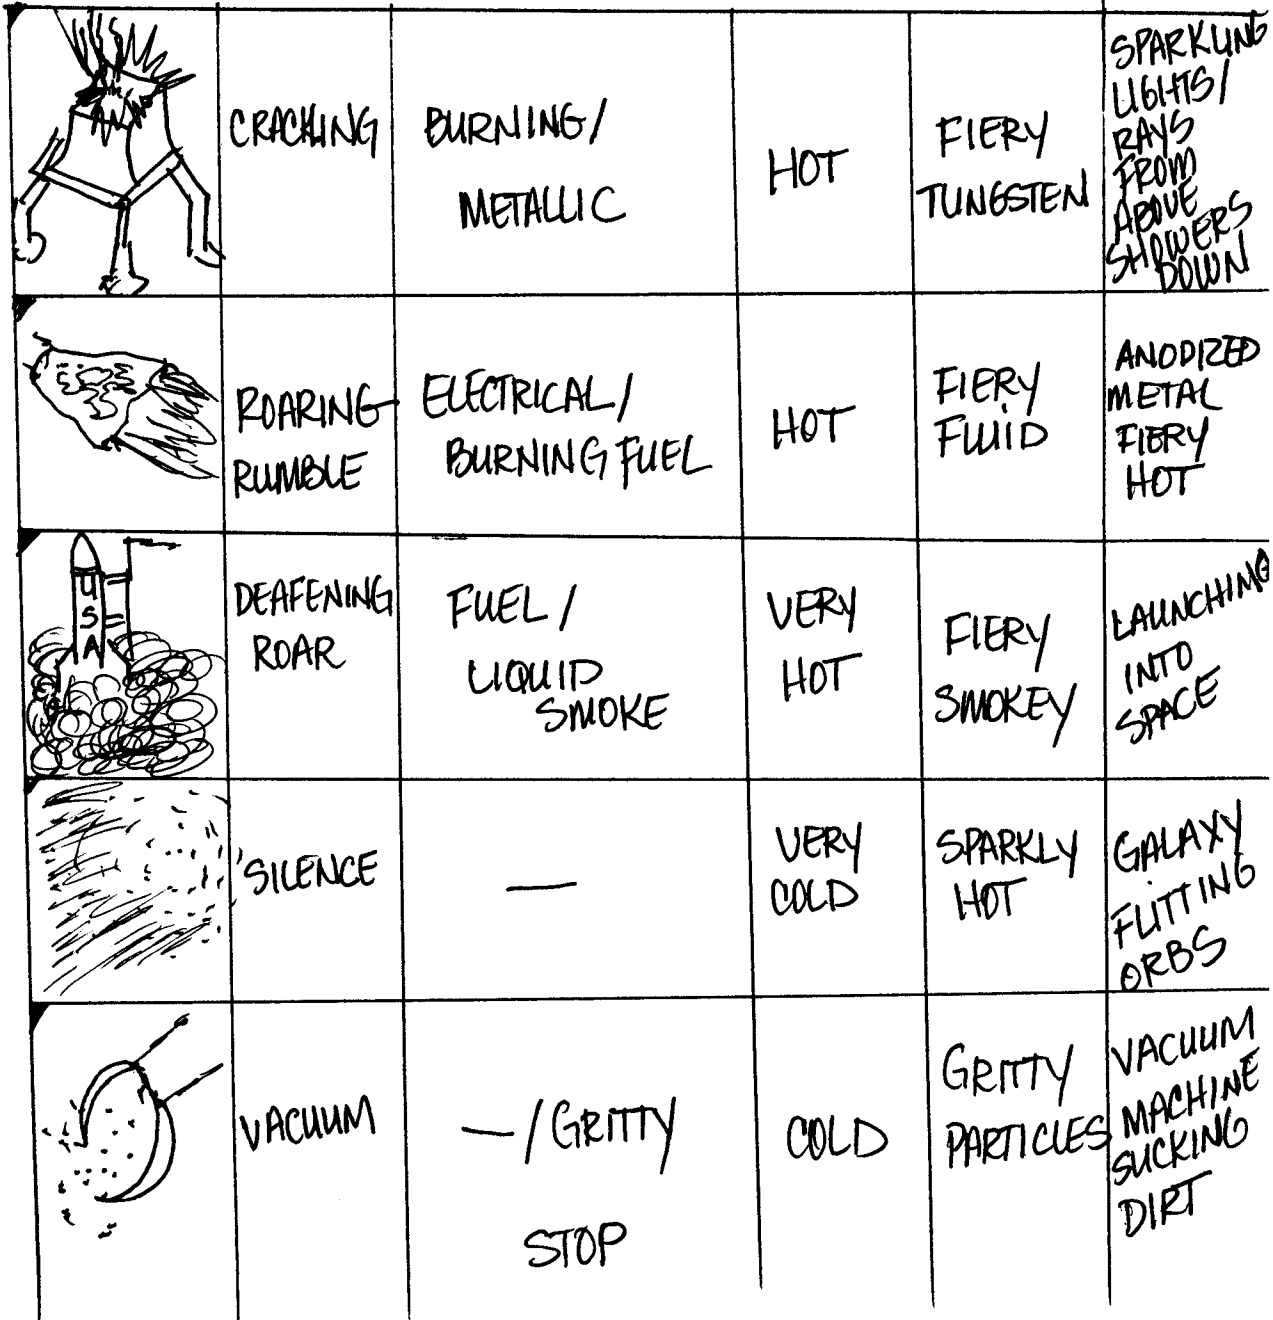 CRACKLING
BURNING/
METALLIC
HOT
FIERY
TUNGSTEN
SPARKLING
LIGHTS/
RAYS
FROM
ABOVE
SHOWERS
DOWN
ROARING
RUMBLE
ELECTRICAL/
BURNING FUEL
HOT
FIERY
FLUID
ANODIZED
METAL
FIERY
HOT
USA
DEAFENING
ROAR
FUEL/
LIQUID
SMOKE
VERY
HOT
FIERY
SMOKEY
LAUNCHING
INTO
SPACE
SILENCE
—
VERY
COLD
SPARKLY
HOT
GALAXY
FLITTING
ORBS
VACUUM
—/GRITTY
STOP
COLD
GRITTY
PARTICLES
VACUUM
MACHINE
SUCKING
DIRT